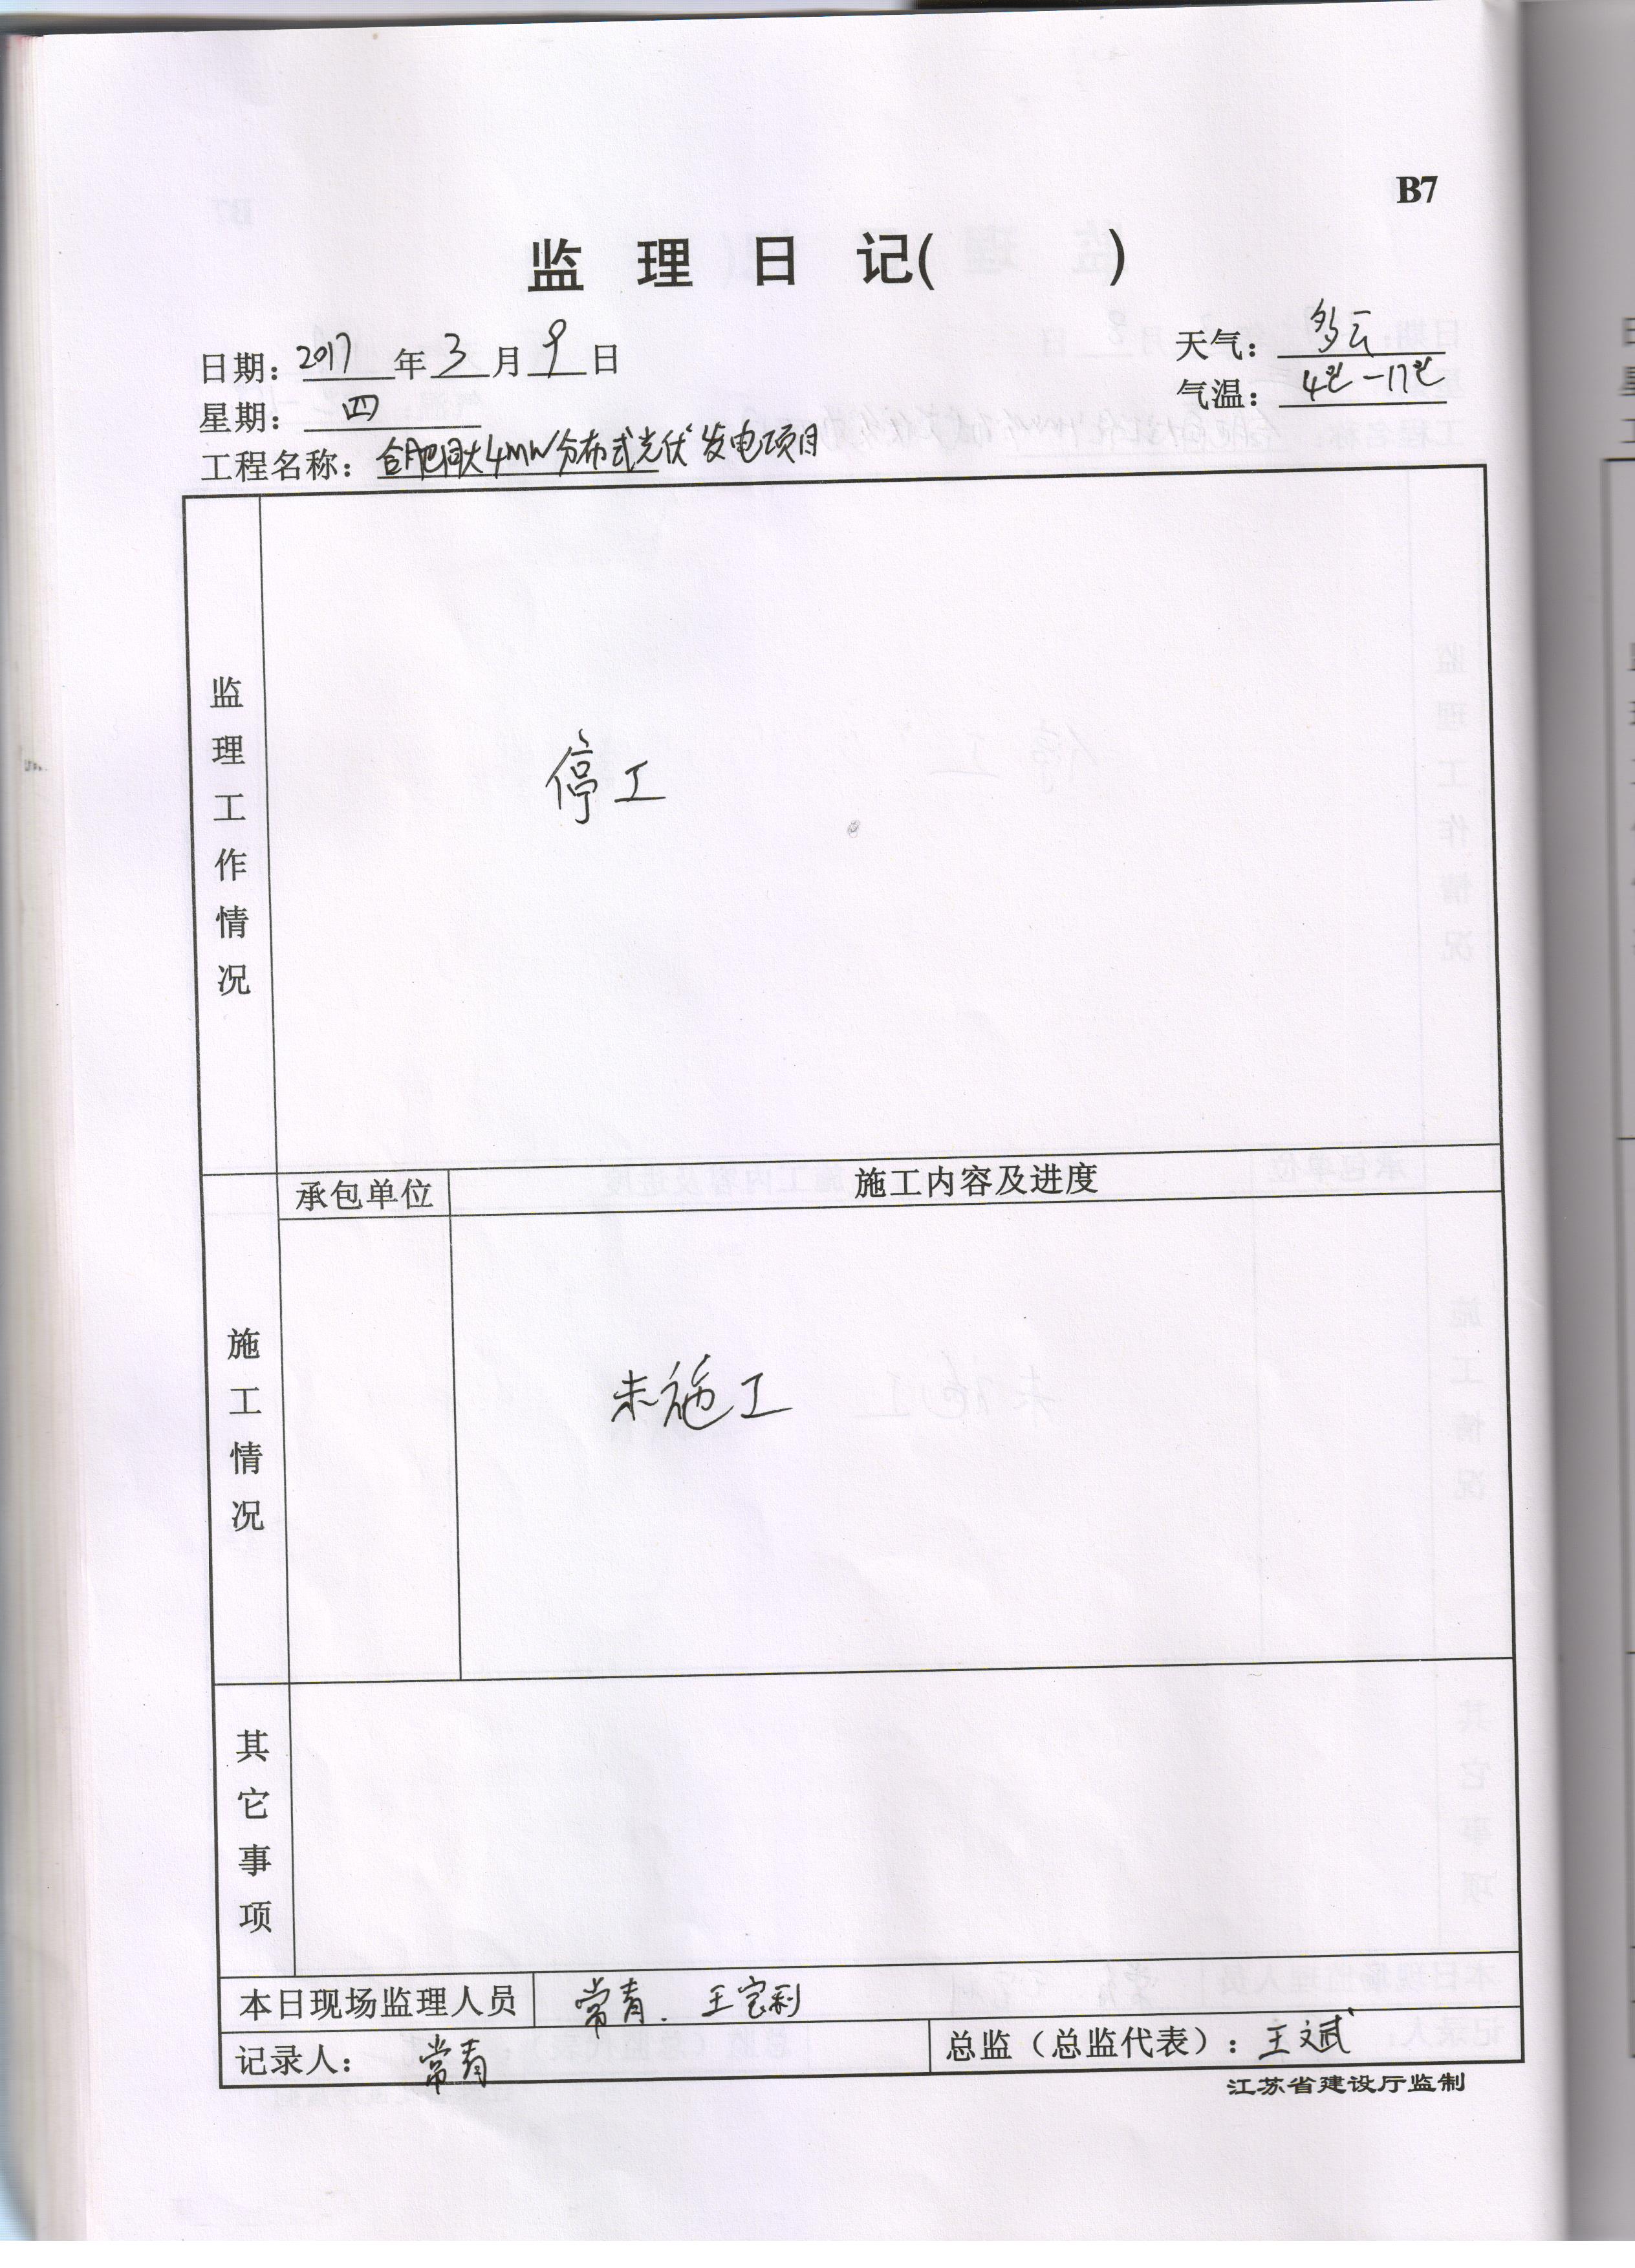 B7
监 理 日 记(　　)
日期：2017年3月9日
天气：多云
星期：四
气温：4℃-17℃
工程名称：合肥同大4MW分布式光伏发电项目
监理工作情况
停工
承包单位 施工内容及进度
施工情况
未施工
其它事项
本日现场监理人员 常青. 王宝利
记录人：常青 总监（总监代表）：王文斌
江苏省建设厅监制